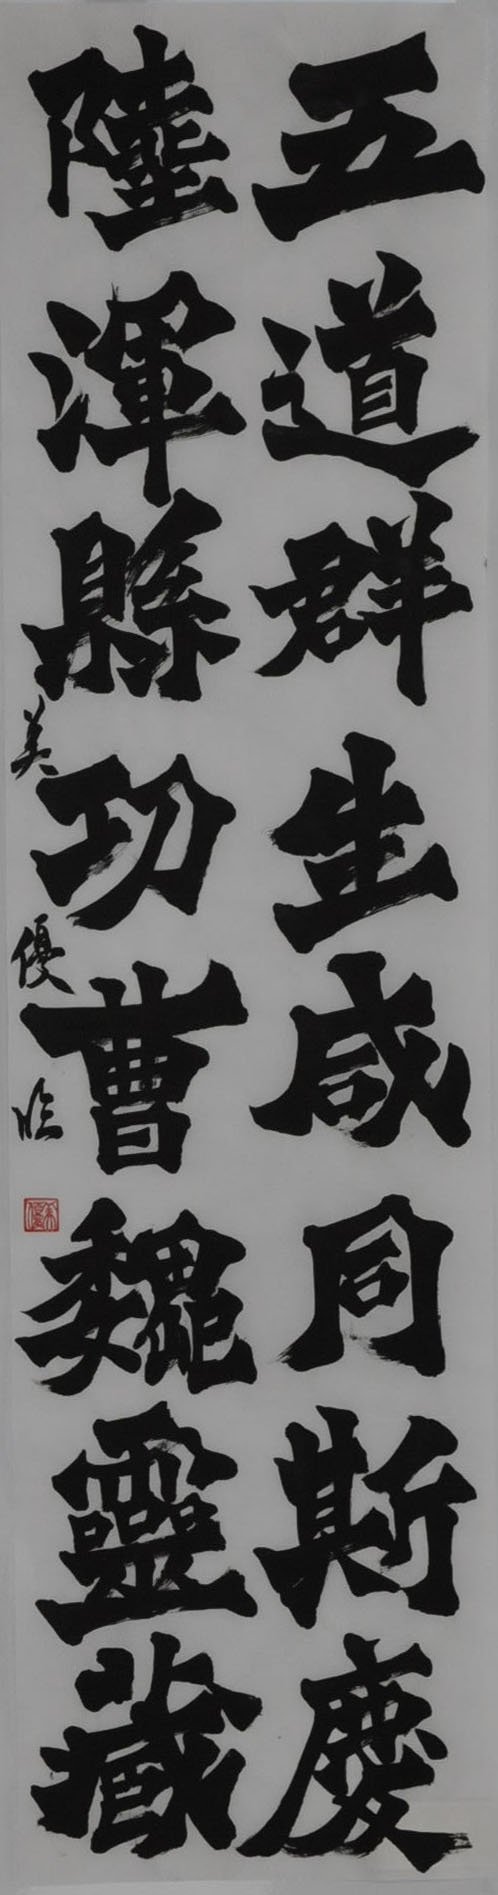 五道群生咸同斯慶
陸渾縣功曹魏靈藏
美優臨